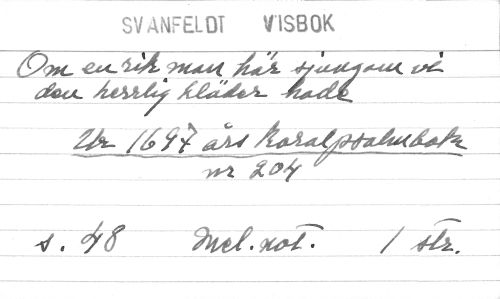 SVANFELDT VISBOK
Om en rik man här sjungom vi
den herrlig kläder hade
Ur 1697 års Koralpsalmbok
nr 204
s. 48 Mel.not. 1 str.